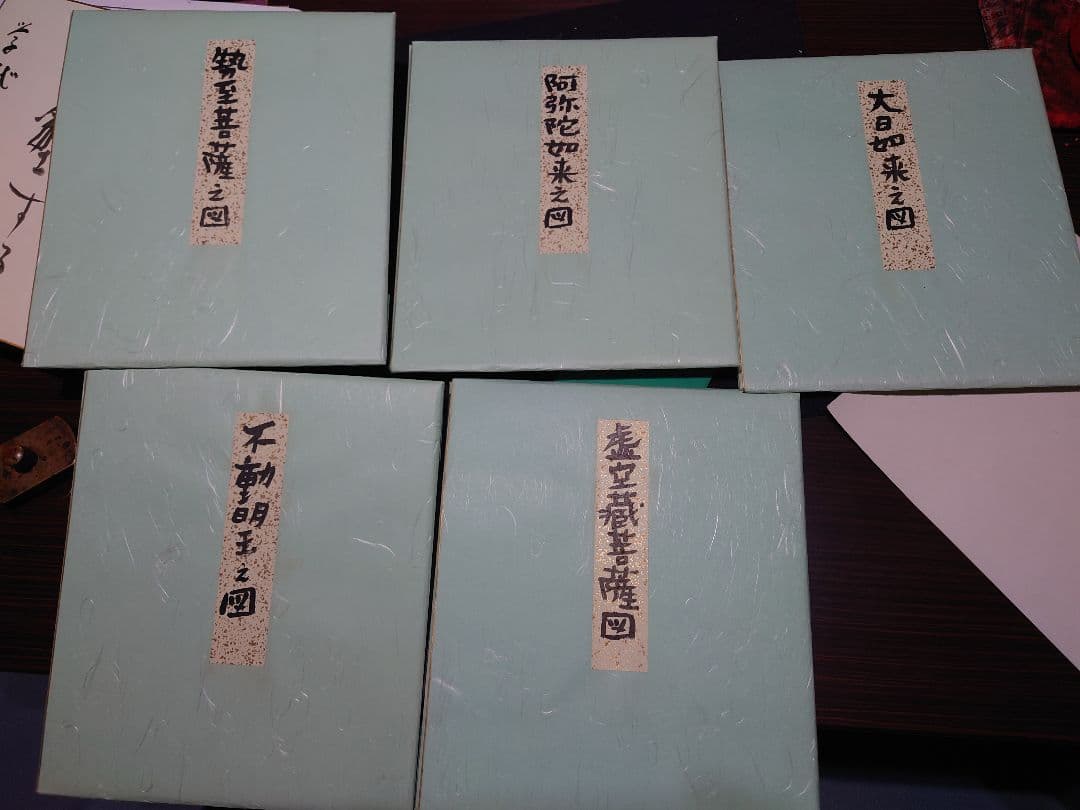 勢至菩薩之図
阿弥陀如来之図
大日如来之図
不動明王之図
虚空蔵菩薩図
する